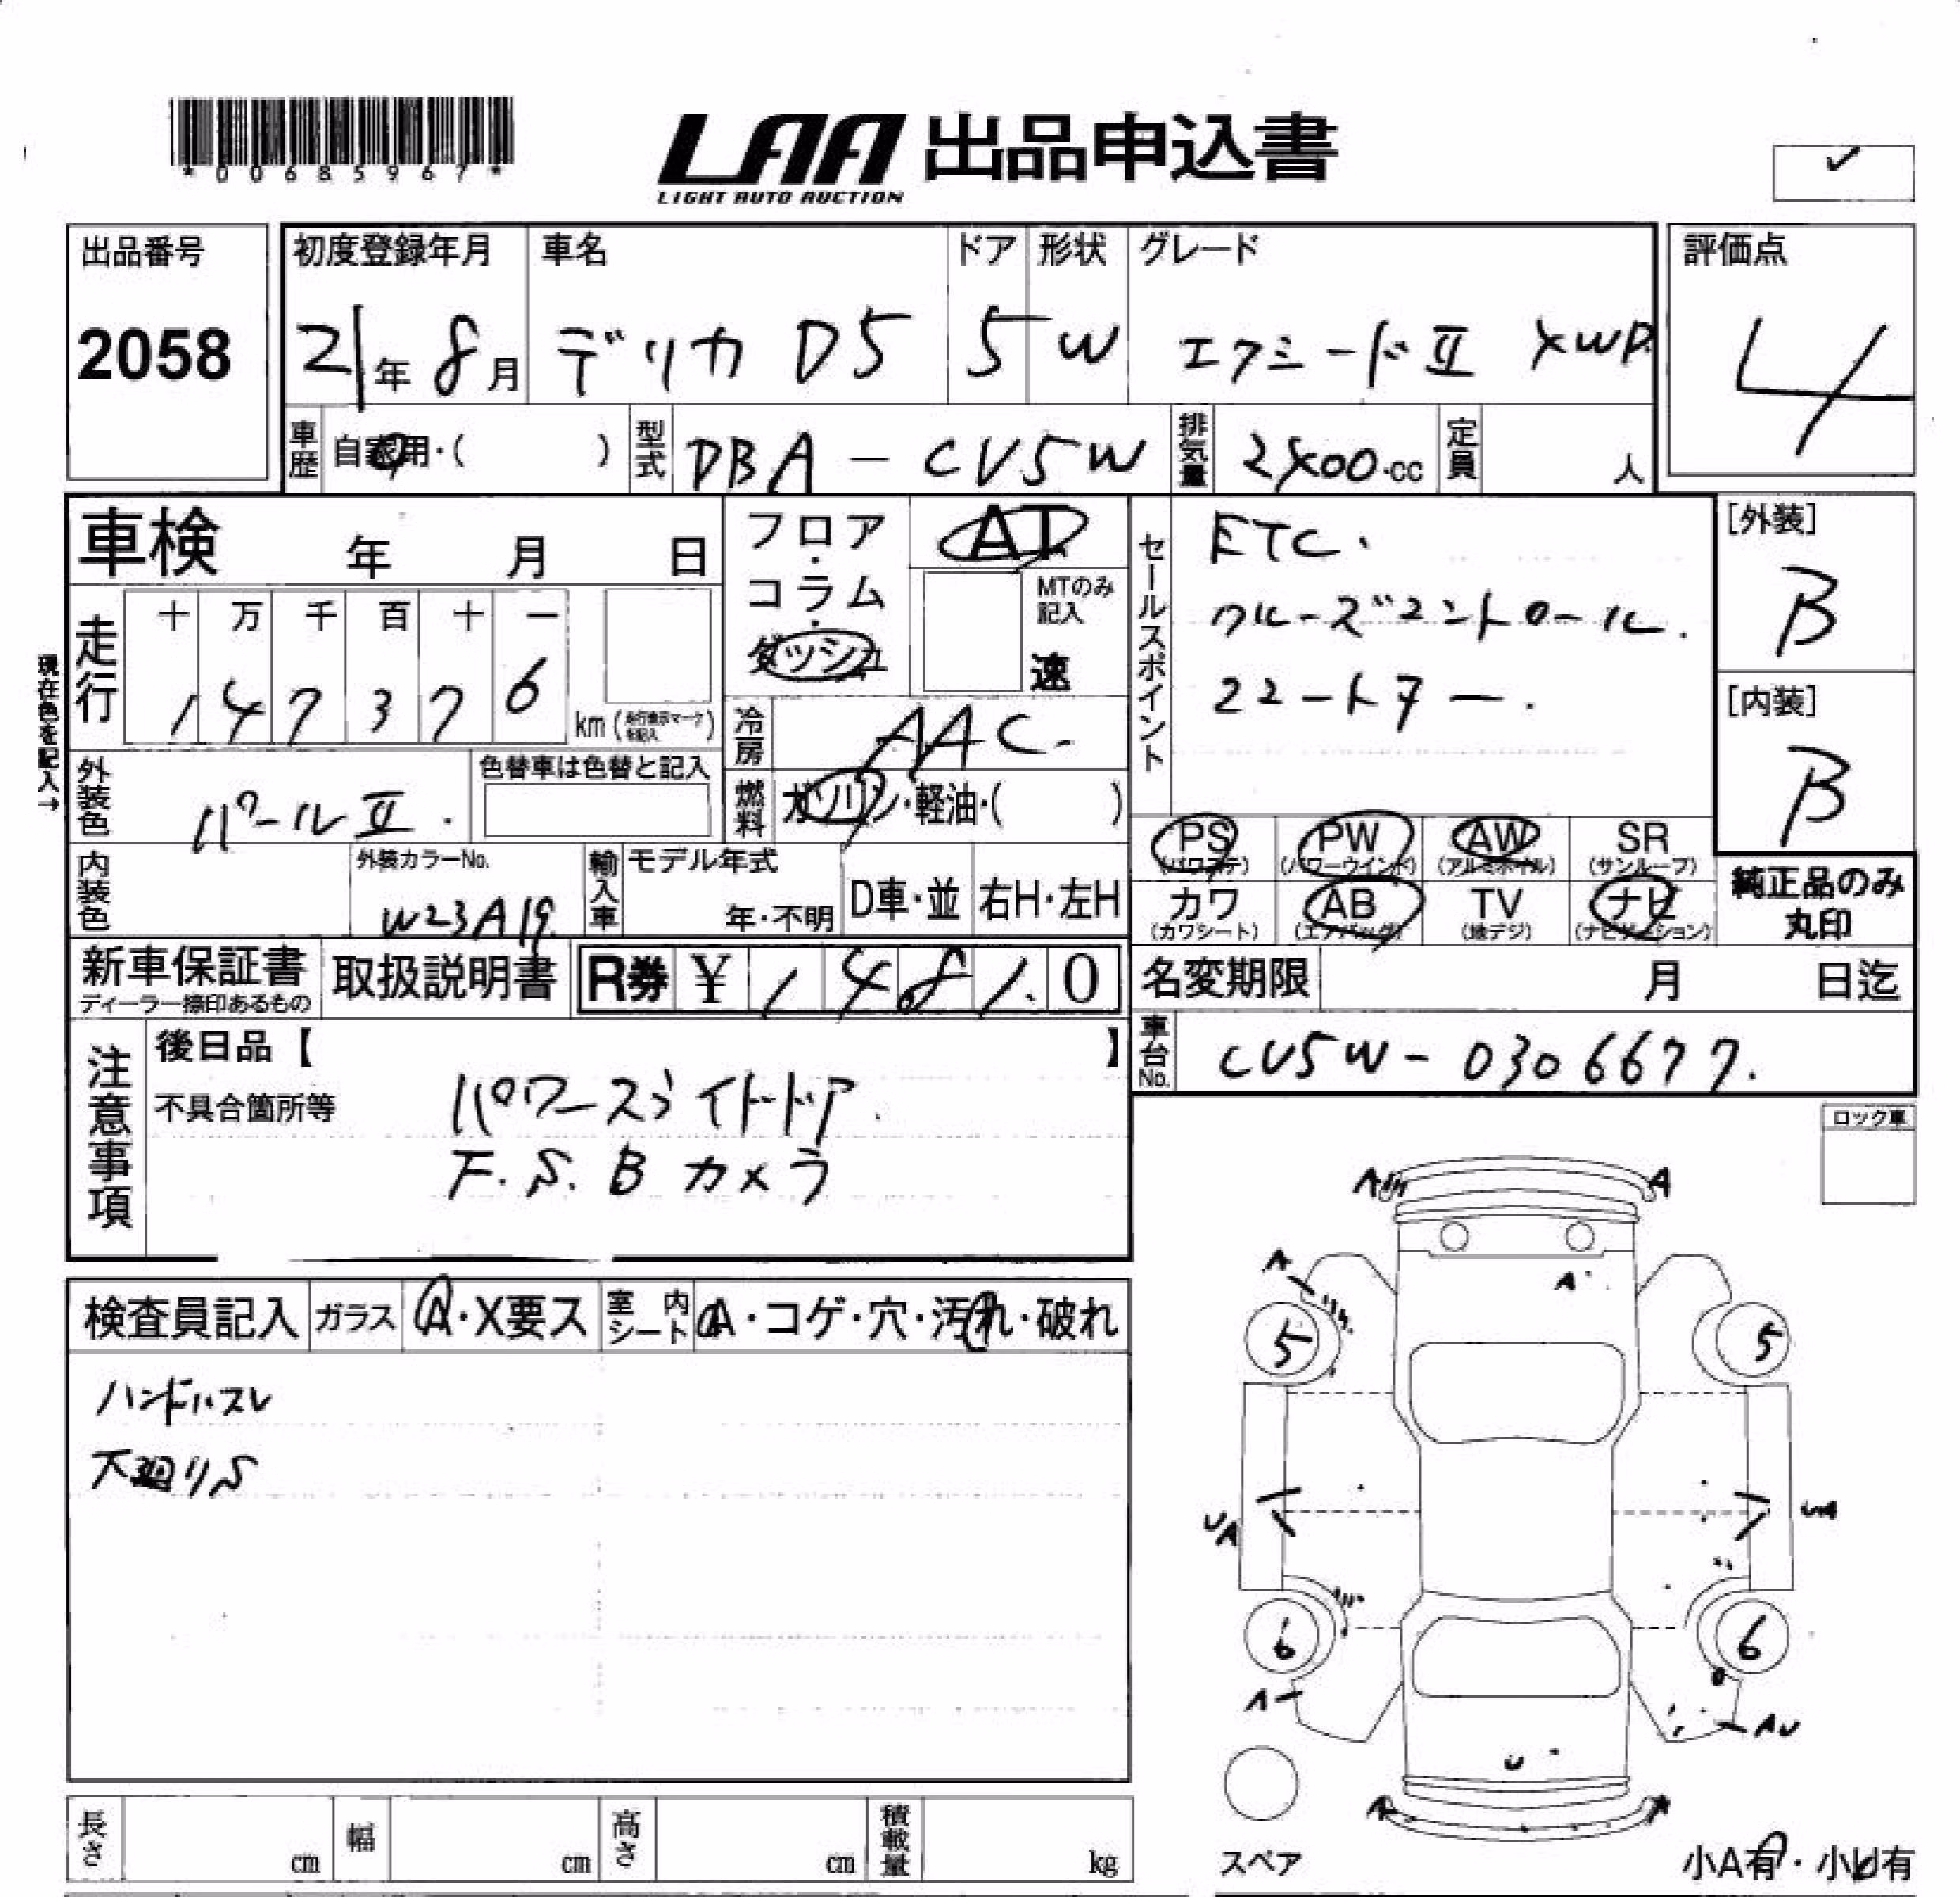 *00685967*
LAA 出品申込書
LIGHT AUTO AUCTION
出品番号
2058
初度登録年月
21年8月
車名
デリカ D5
ドア
5
形状
W
グレード
エクシードⅡ 4WD
評価点
4
車歴
自家用・( )
型式
DBA-CV5W
排気量
2400.cc
定員
人
車検 年 月 日
フロア・コラム・ダッシュ
AT
MTのみ記入
速
セールスポイント
ETC.
クルーズコントロール.
22ートター.
[外装]
B
[内装]
B
現在色を記入→
走行
十 万 千 百 十 一
1 4 7 3 7 6
km (走行表示マークを記入)
冷房
AAC.
外装色
パールⅡ.
色替車は色替と記入
燃料
ガソリン・軽油・( )
PS (パワステ)
PW (パワーウインド)
AW (アルミホイル)
SR (サンルーフ)
カワ (カワシート)
AB (エアバッグ)
TV (地デジ)
ナビ (ナビゲーション)
純正品のみ丸印
内装色
外装カラーNo.
W23A19
輸入車
モデル年式
年・不明
D車・並
右H・左H
新車保証書
ディーラー捺印あるもの
取扱説明書
R券 ¥ 1 4 8 1 0
名変期限 月 日迄
車台No.
CV5W-0306677.
注意事項
後日品【 】
不具合箇所等
パワースライドドア.
F.S.Bカメラ
ロック車
検査員記入
ガラス
A・X要ス
室内シート
A・コゲ・穴・汚れ・破れ
ハンドルスレ
下廻りS
A A
A A
5 5
UA UA
6 6
A AU
U
A A
スペア
小A有・小U有
長さ cm
幅 cm
高さ cm
積載量 kg